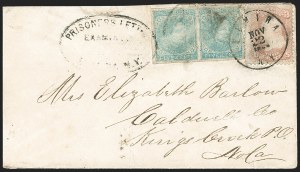 PRISONERS LETTER
EXAMINED
N.Y.
ELMIRA
NOV
22
Mrs Elizabeth Barlow
Caldwell Co
Kings Creek P.O.
No Ca